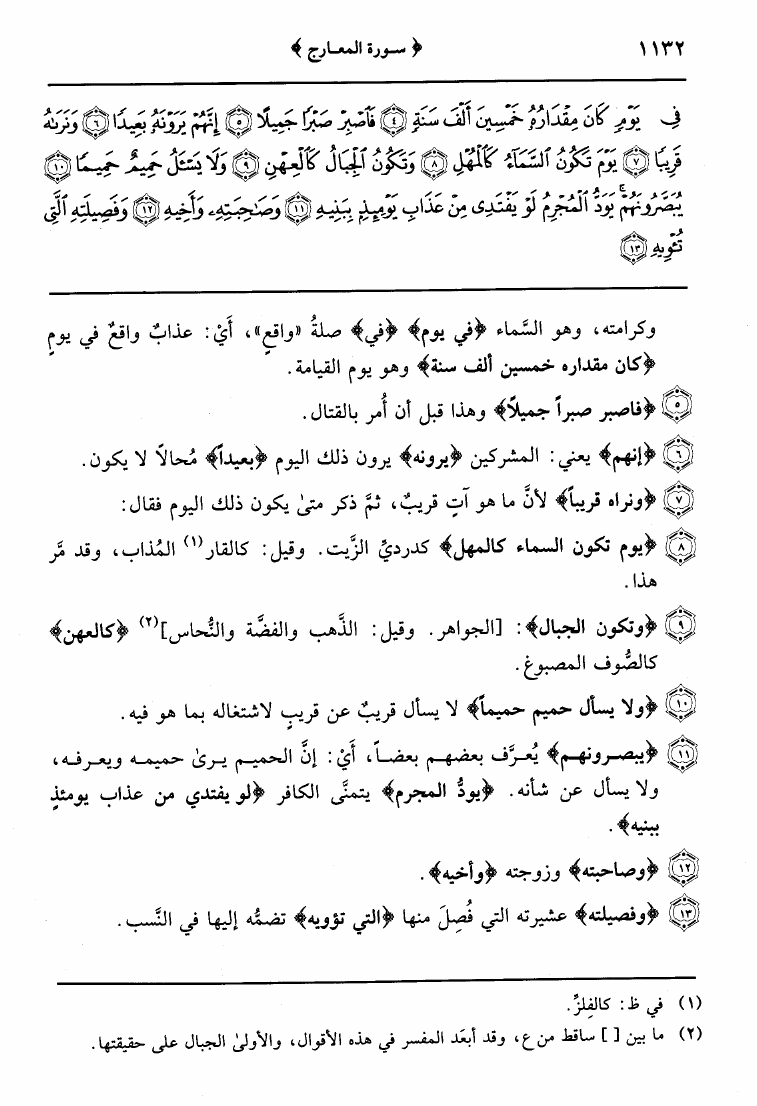 ١١٣٢ ﴿ سورة المعارج ﴾
فِى يَوْمٍ كَانَ مِقْدَارُهُۥ خَمْسِينَ أَلْفَ سَنَةٍ ﴿٤﴾ فَٱصْبِرْ صَبْرًا جَمِيلًا ﴿٥﴾ إِنَّهُمْ يَرَوْنَهُۥ بَعِيدًا ﴿٦﴾ وَنَرَىٰهُ
قَرِيبًا ﴿٧﴾ يَوْمَ تَكُونُ ٱلسَّمَآءُ كَٱلْمُهْلِ ﴿٨﴾ وَتَكُونُ ٱلْجِبَالُ كَٱلْعِهْنِ ﴿٩﴾ وَلَا يَسْـَٔلُ حَمِيمٌ حَمِيمًا ﴿١٠﴾
يُبَصَّرُونَهُمْ ۚ يَوَدُّ ٱلْمُجْرِمُ لَوْ يَفْتَدِى مِنْ عَذَابِ يَوْمِئِذٍۭ بِبَنِيهِ ﴿١١﴾ وَصَٰحِبَتِهِۦ وَأَخِيهِ ﴿١٢﴾ وَفَصِيلَتِهِ ٱلَّتِى
تُـْٔوِيهِ ﴿١٣﴾
وكرامته، وهو السَّماء ﴿في يوم﴾ ﴿في﴾ صلةُ «واقعٍ»، أَيْ: عذابٌ واقعٌ في يومٍ
﴿كان مقداره خمسين ألف سنة﴾ وهو يوم القيامة.
٥ ﴿فاصبر صبراً جميلاً﴾ وهذا قبل أن أُمر بالقتال.
٦ ﴿إنهم﴾ يعني: المشركين ﴿يرونه﴾ يرون ذلك اليوم ﴿بعيداً﴾ مُحالاً لا يكون.
٧ ﴿ونراه قريباً﴾ لأنَّ ما هو آتٍ قريبٌ، ثمَّ ذكر متىٰ يكون ذلك اليوم فقال:
٨ ﴿يوم تكون السماء كالمهل﴾ كدرديِّ الزَّيت. وقيل: كالقار(١) المُذاب، وقد مَّر
هذا.
٩ ﴿وتكون الجبال﴾: [الجواهر. وقيل: الذَّهب والفضَّة والنُّحاس](٢) ﴿كالعهن﴾
كالصُّوف المصبوغ.
١٠ ﴿ولا يسأل حميم حميماً﴾ لا يسأل قريبٌ عن قريبٍ لاشتغاله بما هو فيه.
١١ ﴿يبصرونهم﴾ يُعرَّف بعضهم بعضاً، أَيْ: إنَّ الحميم يرىٰ حميمه ويعرفه،
ولا يسأل عن شأنه. ﴿يودُّ المجرم﴾ يتمنَّى الكافر ﴿لو يفتدي من عذاب يومئذٍ
ببنيه﴾.
١٢ ﴿وصاحبته﴾ وزوجته ﴿وأخيه﴾.
١٣ ﴿وفصيلته﴾ عشيرته التي فُصِلَ منها ﴿التي تؤويه﴾ تضمُّه إليها في النَّسب.
(١) في ظ: كالفِلزِّ.
(٢) ما بين [ ] ساقط من ع، وقد أبعَد المفسر في هذه الأقوال، والأولىٰ الجبال على حقيقتها.